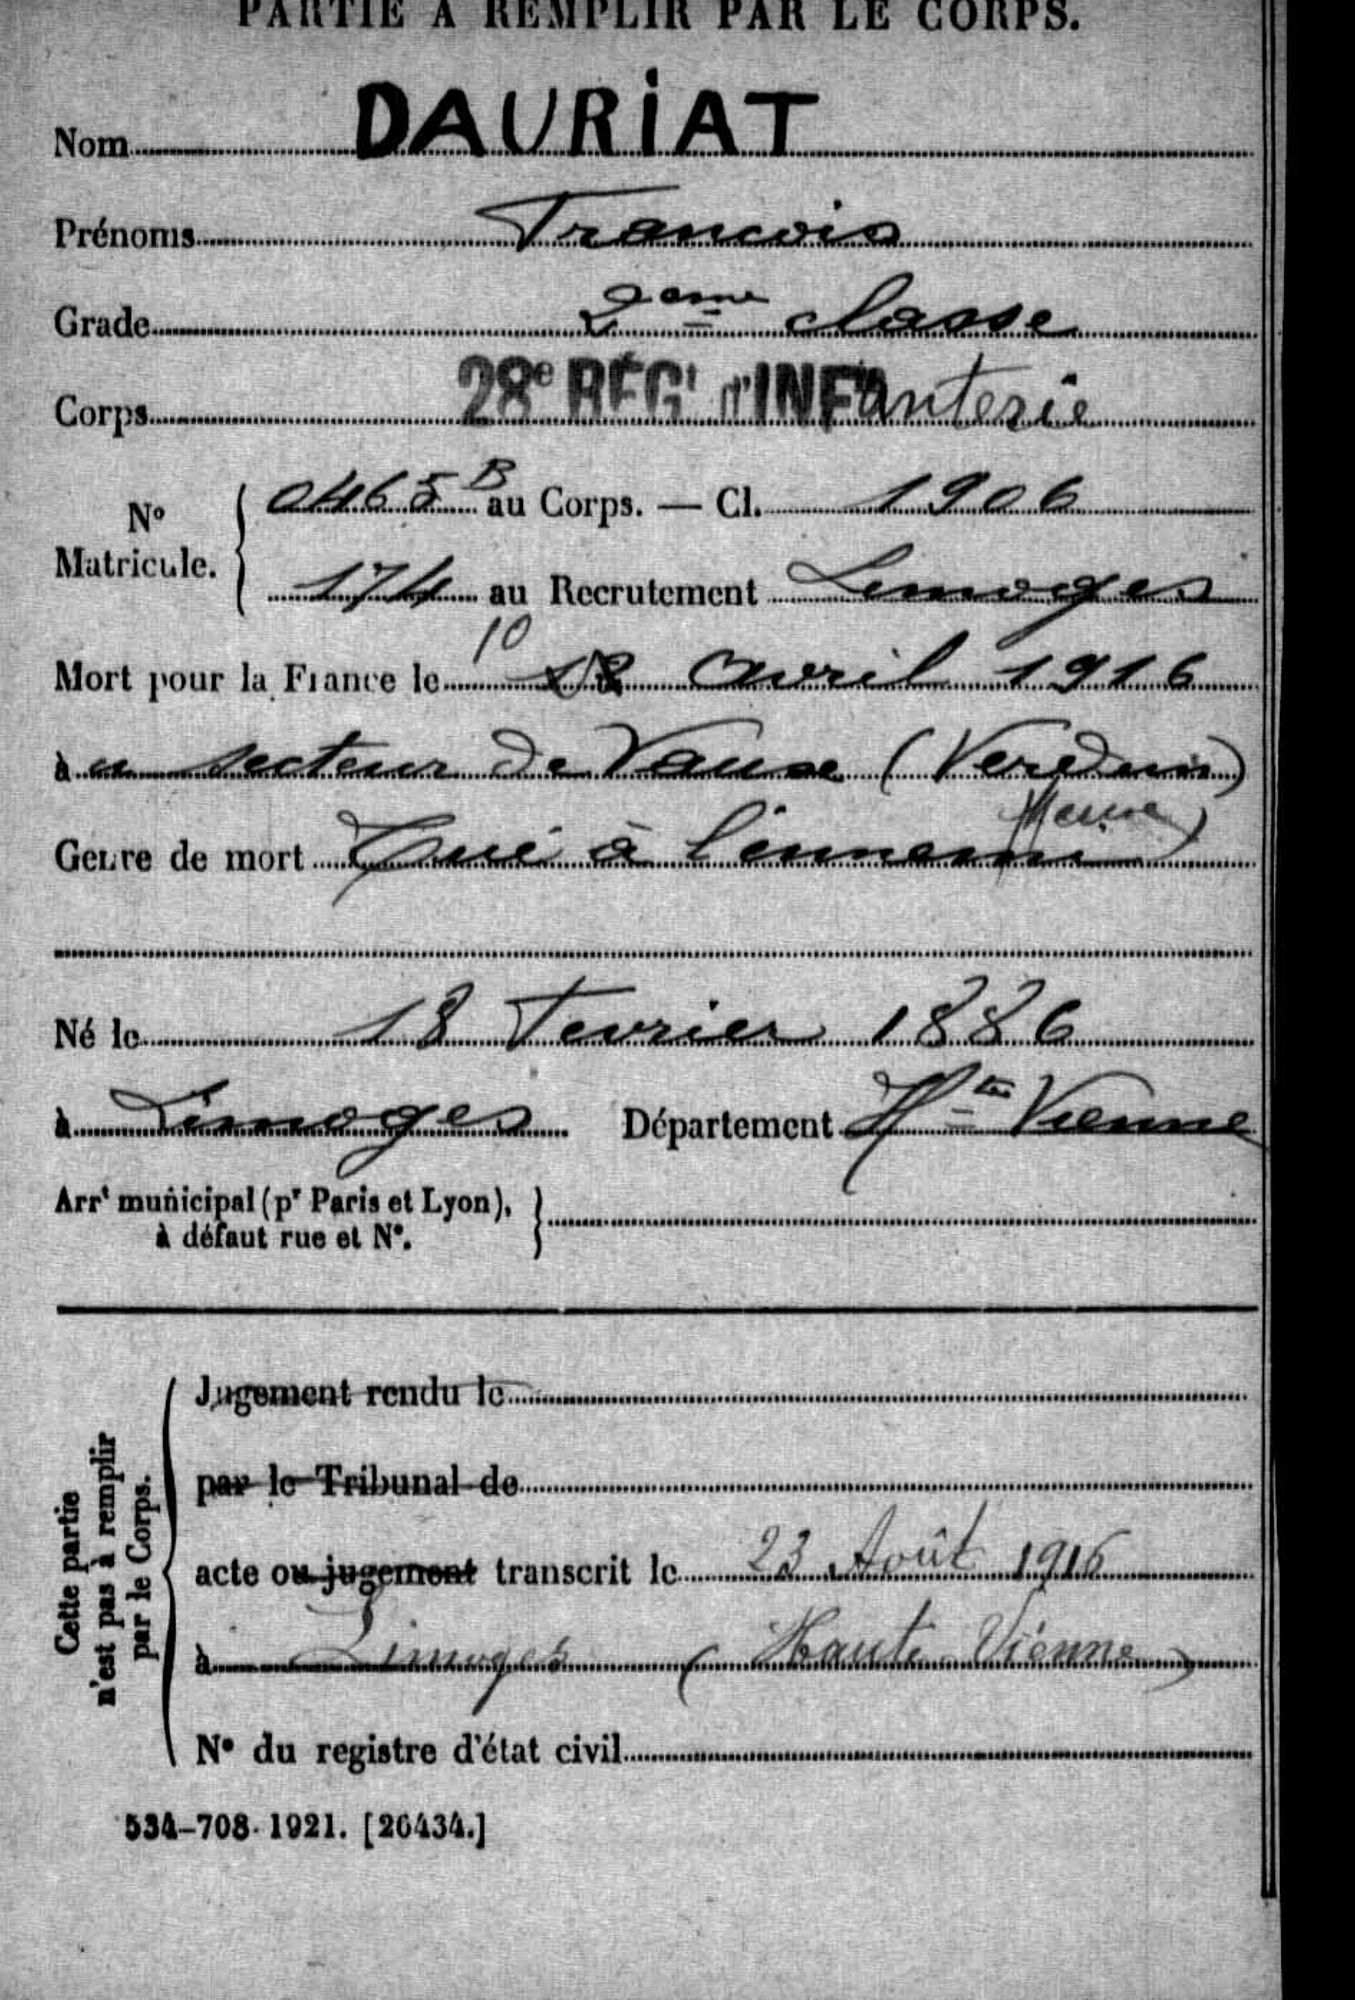 PARTIE A REMPLIR PAR LE CORPS.
Nom DAURIAT
Prénoms Francois
Grade 2eme classe
Corps 28e RÉGt d'INFanterie
No Matricule. 0465 B au Corps. — Cl. 1906
174 au Recrutement Limoges
10
Mort pour la France le 12 avril 1916
à u secteur de Vaux (Verdun)
Meuse)
Genre de mort Tué à l'ennemi
Né le 18 Fevrier 1886
à Limoges Département Hte Vienne
Arrt municipal (pr Paris et Lyon),
à défaut rue et No.
Cette partie
n'est pas à remplir
par le Corps.
Jugement rendu le
par le Tribunal de
acte ou jugement transcrit le 23 Août 1916
à Limoges (Haute Vienne)
No du registre d'état civil
534-708-1921. [26434.]